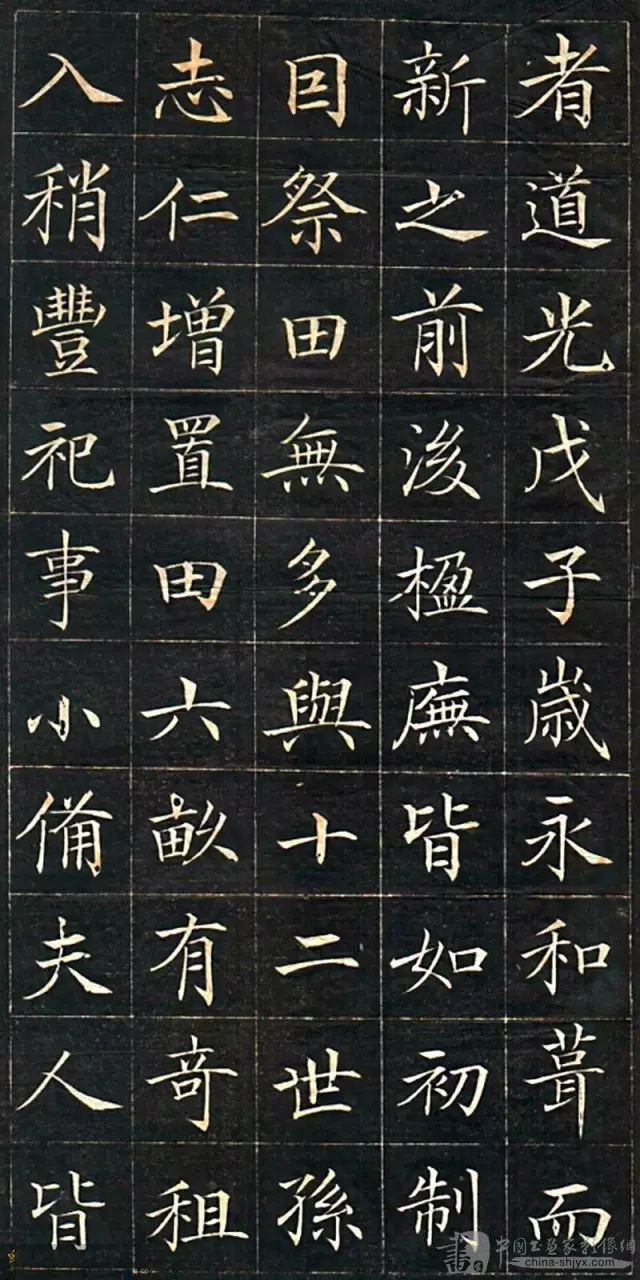 者道光戊子歲永和葺而
新之前後楹廡皆如初制
因祭田無多與十二世孫
志仁增置田六畝有奇租
入稍豐祀事小備夫人皆
中国书画家影像網
china-shjyx.com